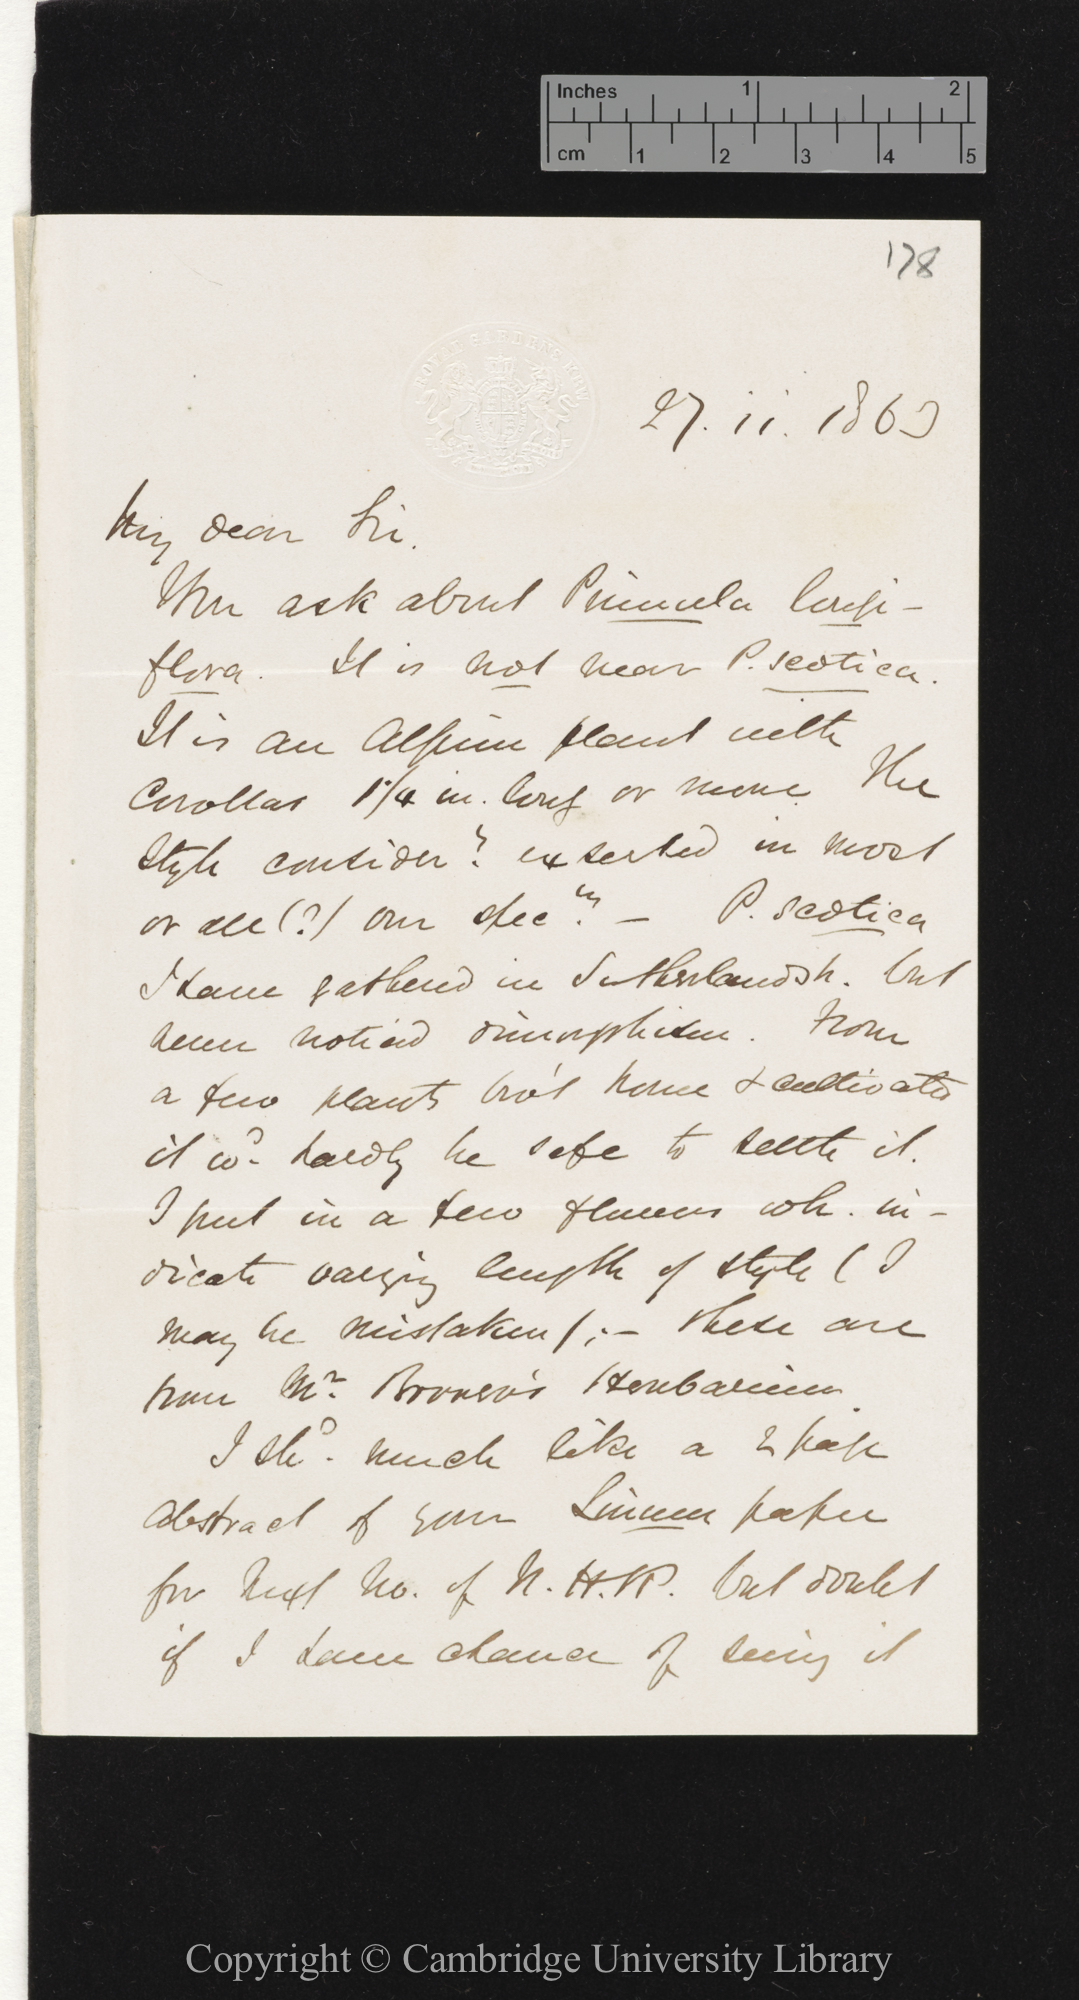 Inches 1 2
cm 1 2 3 4 5
178
ROYAL GARDENS KEW
27. ii. 1863
My dear Sir.
You ask about Primula longi-
flora. It is not near P. scotica.
It is an Alpine plant with
Corollas 1¼ in. long or more. The
Style considerˡʸ exserted in most
or all (?) our specᵐˢ. — P. scotica
I have gathered in Sutherlandsh. but
never noticed dimorphism. From
a few plants bro't home & cultivated
it wᵈ. hardly be safe to settle it.
I put in a few flowers wh. in-
dicate varying length of style (I
may be mistaken); — these are
from Mʳ. Borrer's Herbarium.
I shᵈ. much like a 2 page
abstract of your Linum paper
for next No. of N.H.R. but doubt
if I have chance of seeing it
Copyright © Cambridge University Library